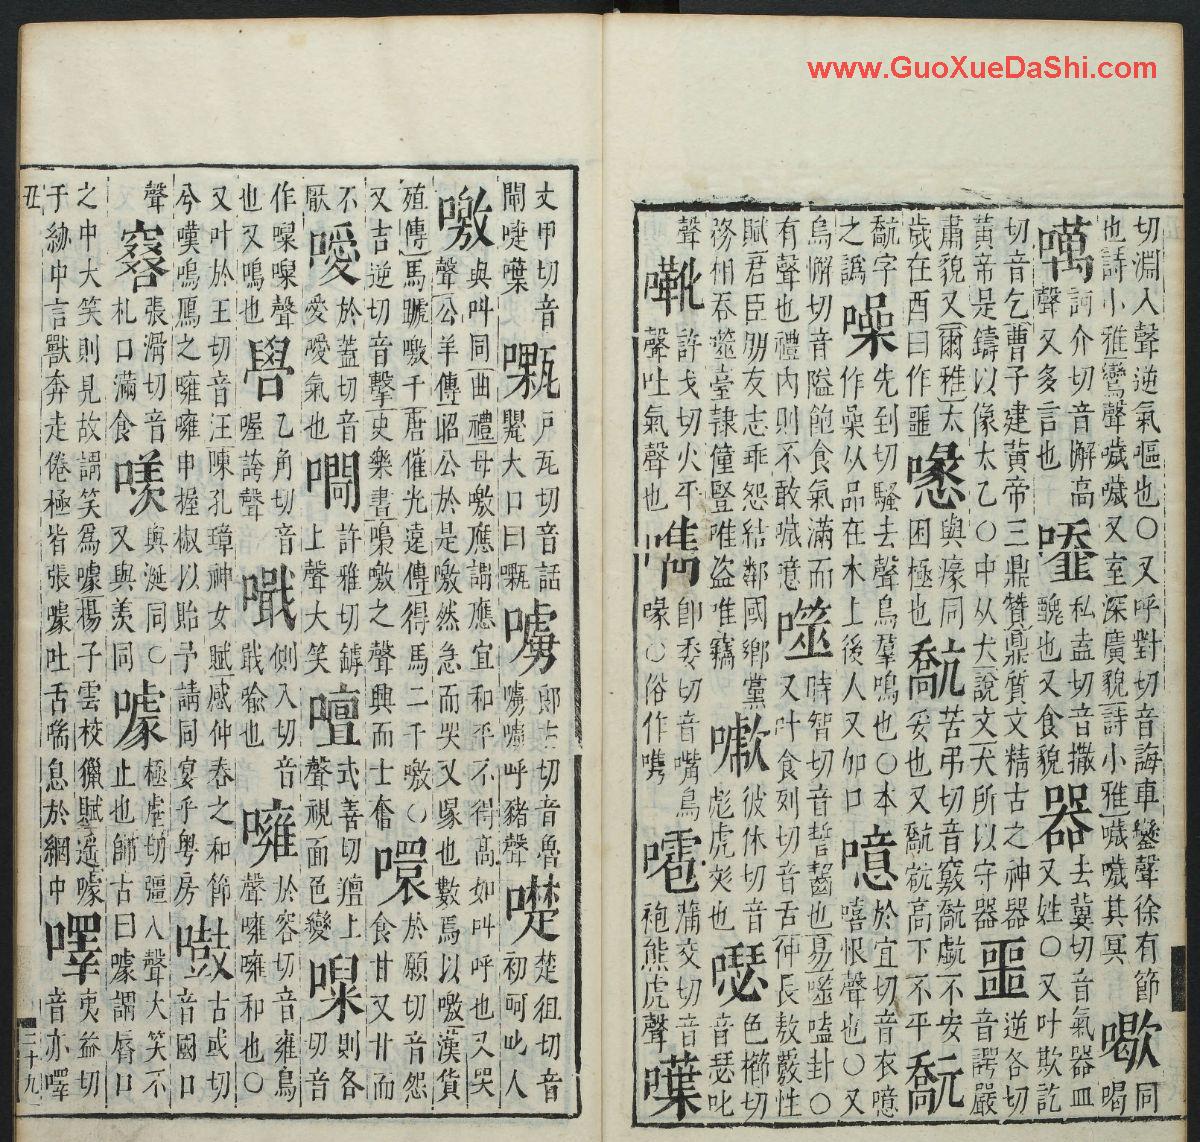 www.GuoXueDaShi.com
切淵入聲逆氣嘔也〇又呼對切音誨車鑾聲徐有節 㗿 同
也詩小雅鸞聲噦噦又室深廣貌詩小雅噦噦其冥 喝
噧 訶介切音解高 私盍切音撒 器 去冀切音氣器皿
聲又多言也 醜也又食貌 又姓〇又叶欺訖
切音乞曹子建黃帝三鼎贊鼎質文精古之神器 噩 逆各切
黃帝是鑄以像太乙〇中从犬說文犬所以守器 音諤嚴
肅貌又爾雅太 與㾾同 苦弔切音竅 不安
歲在酉曰作噩 困極也 妥也又 高下不平
字 噪 先到切騷去聲鳥羣鳴也〇本 噫 於宜切音衣噫
之譌 作喿从品在木上後人又加口 嘻恨聲也〇又
烏懈切音隘飽食氣滿而 噬 時智切音誓齧也易噬嗑封〇
有聲也禮內則不敢噦噫 又叶食列切音舌仲長敖覈性
賦君臣朋友志乖怨結鄰國鄉黨 彪休切音 色櫛切
務相吞噬臺隸僮豎唯盗唯竊 彪虎㚇也 音瑟叱
聲 許戈切火平 噍 卽委切音嘴鳥 蒲交切音
聲吐氣聲也 喙〇俗作㗱 袍熊虎聲 㗼
丈甲切音 戸瓦切音話 㗣 郎古切音魯 楚徂切音
閘啑㗼 大口曰 㗣嘝呼豬聲 初呵叱人
噭 與叫同曲禮毋噭應謂應宜和平不得高如叫呼也又哭
聲公羊傳昭公於是噭然急而哭又㗇也數馬以噭漢貨
殖傳馬蹏噭千唐催光遠傳得馬二千噭〇 噮 於願切音怨
又吉逆切音擊史樂書噪噭之聲興而士奮 食甘又甘而
不 噯 於蓋切音 許雅切罅 式善切羶上 則各
厭 愛噯氣也 上聲大笑 聲視面色變 切音
作㖡㖡聲 乙角切音 側入切音 噰 於容切音雍鳥
也又鳴也 喔誇聲 戢噏也 聲噰噰和也〇
又叶於王切音汪陳孔璋神女賦感仲春之和節 古或切
兮嘆鳴鴈之噰噰申握椒以貽予請同宴乎粤房 音國口
聲 張滑切音 與涎同〇 噱 極虐切彊入聲大笑不
札口滿食 又與羨同 止也師古曰噱謂脣口
之中大笑則見故謂笑爲噱揚子雲校獵賦遥噱 夷益切
于紘中言獸奔走倦極皆張噱吐舌喘息於網中 㘁 音亦㘁
丑
二十九